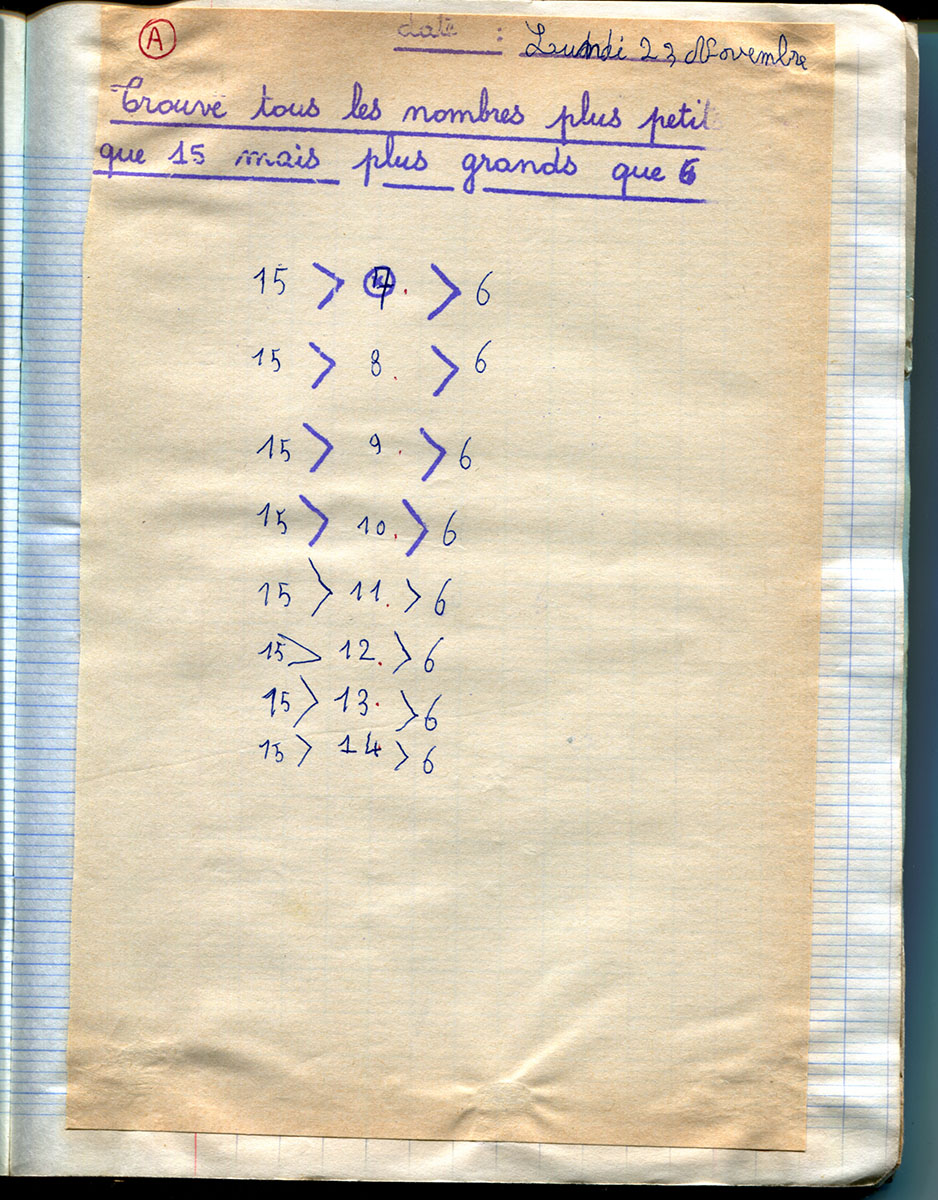 A
date : Lundi 23 Novembre
Trouve tous les nombres plus petit
que 15 mais plus grands que 6
15 > 7 . > 6
15 > 8 . > 6
15 > 9 . > 6
15 > 10 . > 6
15 > 11 . > 6
15 > 12 . > 6
15 > 13 . > 6
15 > 14 > 6